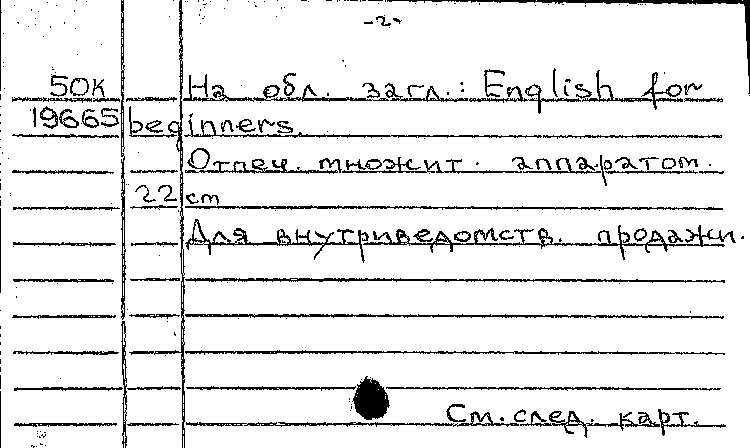 -2-
50К На обл. загл.: English for
19665 beginners.
Отпеч. множит. аппаратом.
22 cm
Для внутриведомств. продажи.
См. след. карт.